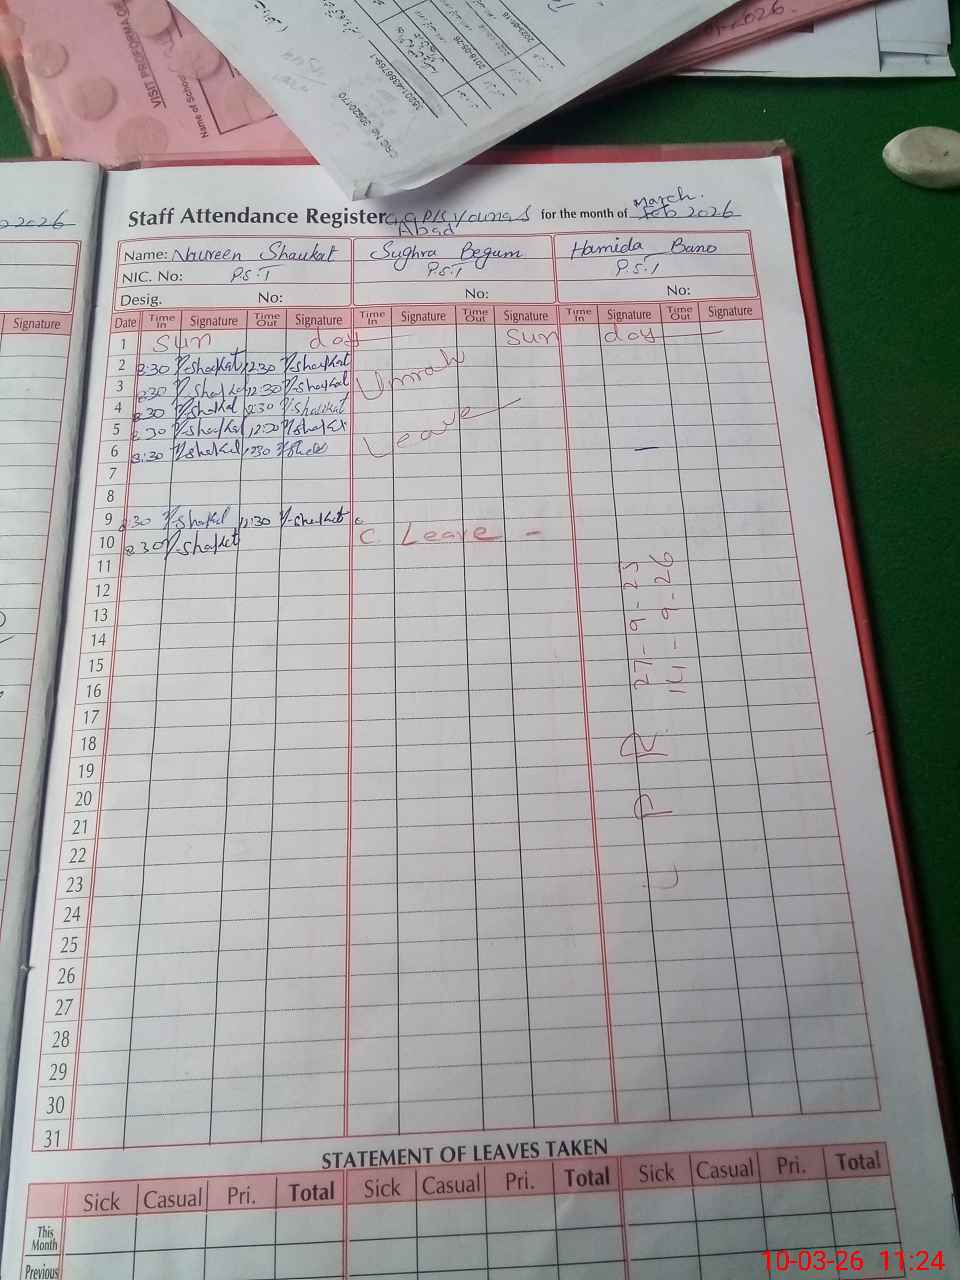 VISIT PROFORMA
Name of School
2026
Staff Attendance Register G.G.P/S Younas Abad for the month of March. Feb 2026
Name: Naureen Shaukat Sughra Begum Hamida Bano
NIC. No: P.S.T P.S.T P.S.T
Desig. No: No: No:
Signature Date Time In Signature Time Out Signature Time In Signature Time Out Signature Time In Signature Time Out Signature
1 Sun day Sun day
2 8:30 N-Shaukat 12:30 N-Shaukat
3 8:30 N-Shaukat 12:30 N-Shaukat Umrah
4 8:30 N-Shaukat 12:30 N-Shaukat
5 8:30 N-Shaukat 12:30 N-Shaukat Leave
6 8:30 N-Shaukat 12:30
7
8
9 8:30 N-Shaukat 11:30 N-Shaukat
10 8:30 N-Shaukat C. Leave -
11
12
13
14
15
16
17
18
19
20
21
22
23
24
25
26
27
28
29
30
31
27-9-25
14-9-26
STATEMENT OF LEAVES TAKEN
Sick Casual Pri. Total Sick Casual Pri. Total Sick Casual Pri. Total
This Month
Previous
10-03-26 11:24